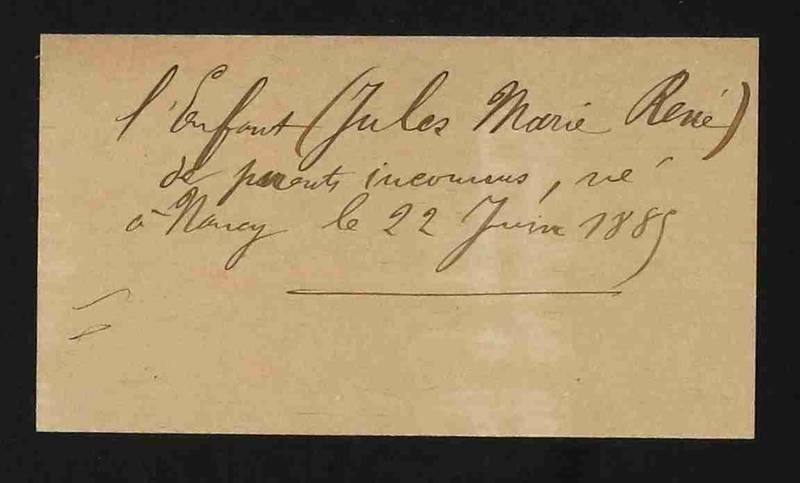 l'Enfant (Jules Marie René)
de parents inconnus, né
à Nancy le 22 Juin 1885